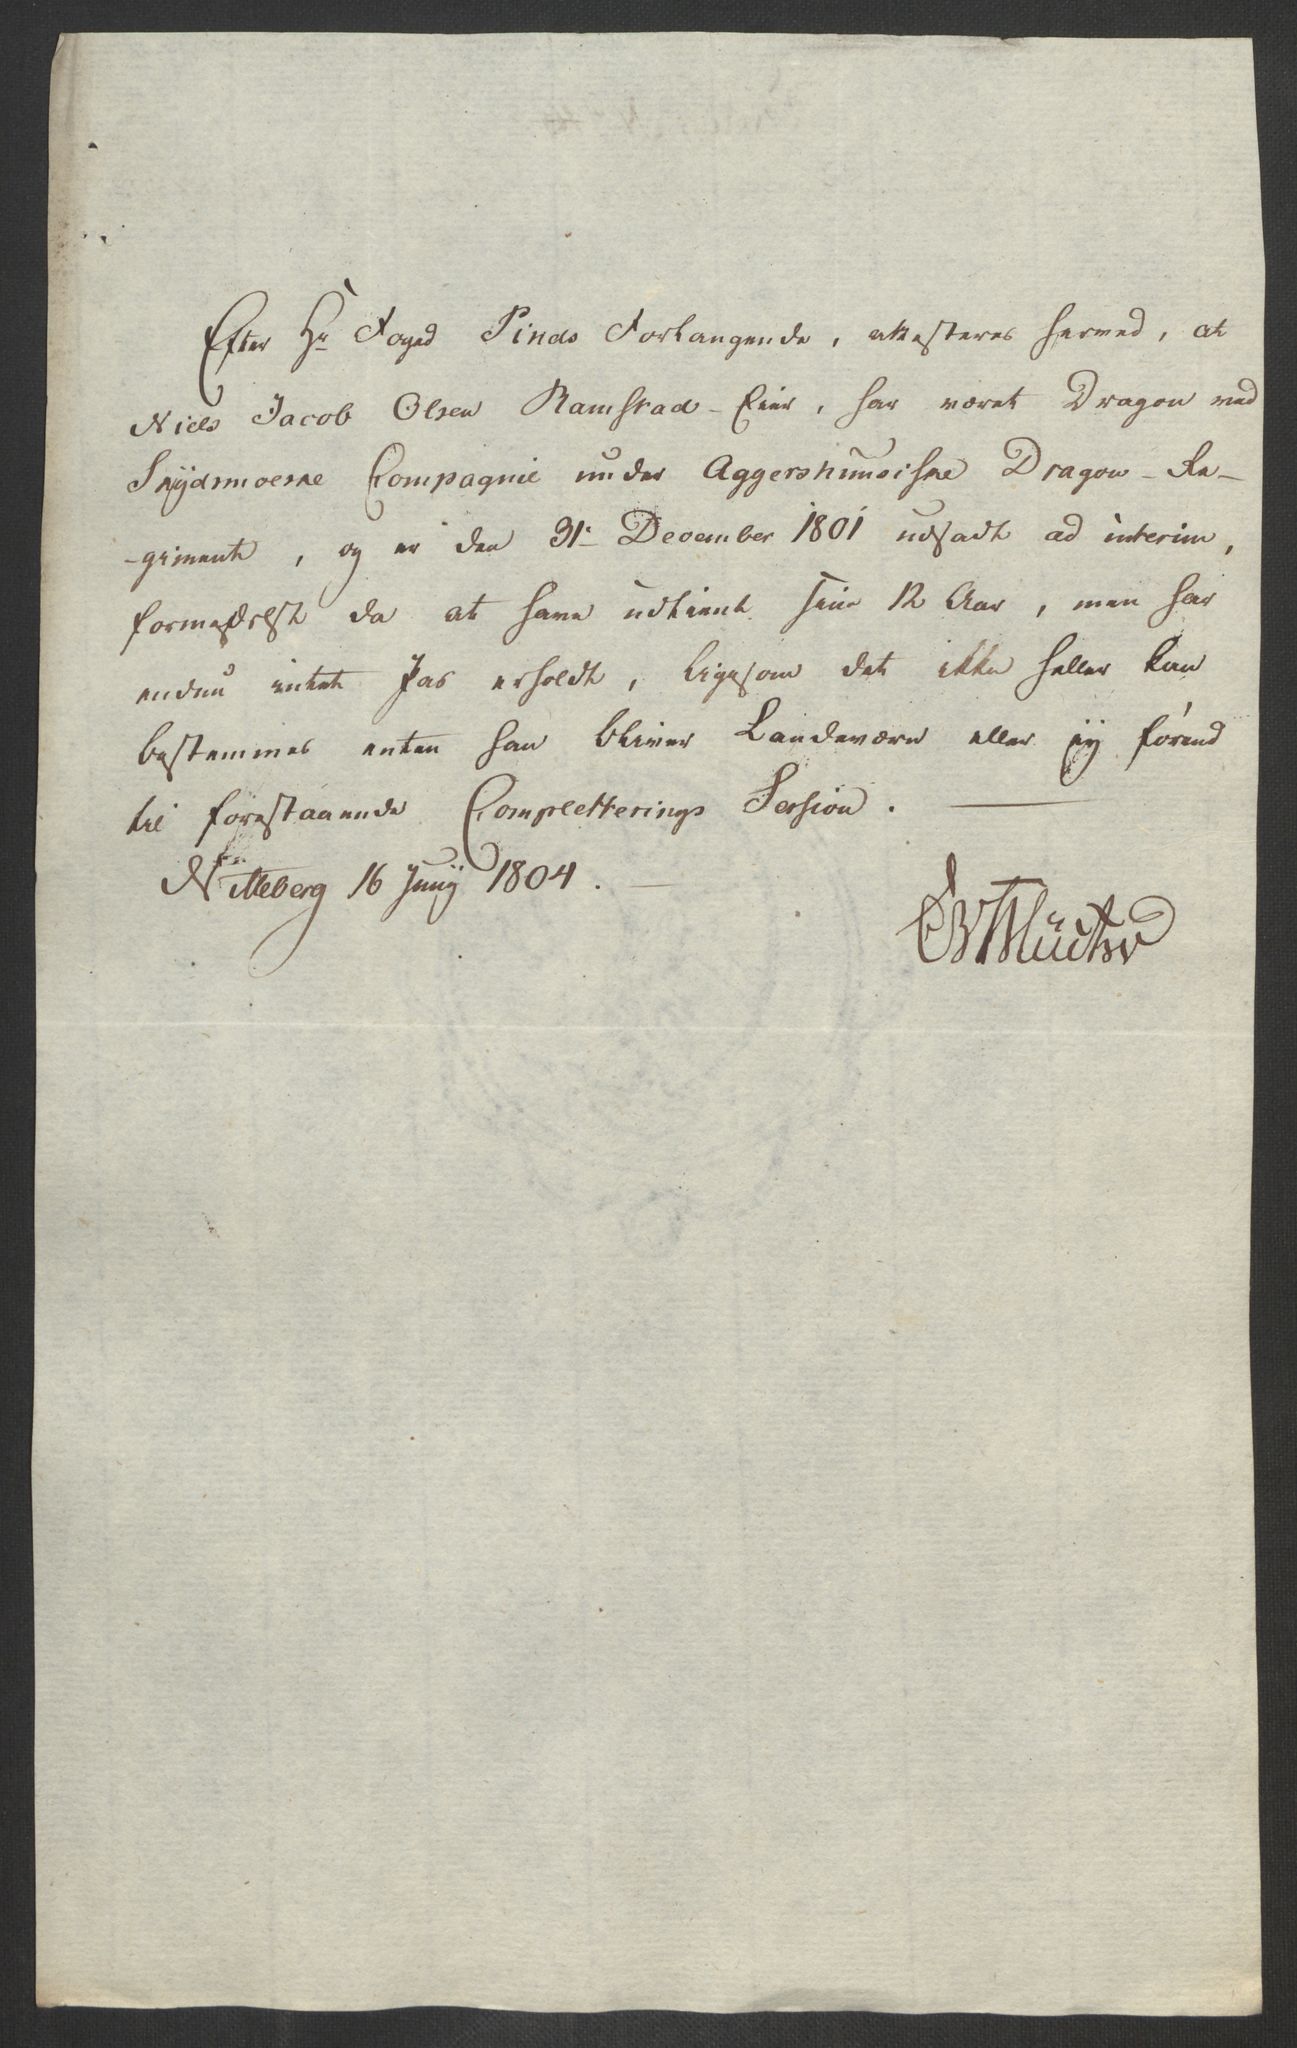 Efter Hr Foged Pinds Forlangende, attesteres herved, at
Niels Jacob Olsen Ramstad-Eier, har været Dragon ved
Snÿdsmoeske Compagnie under Aggershuusiske Dragon-Re-
-giment, og er den 31. December 1801 udsadt ad interim,
formedelst da at have udtient sine 12 Aar, men har
endnu intet Pas erholdt, ligesom det ikke heller kan
bestemmes enten han bliver Landeværn eller eÿ førend
til forestaaende Completterings Session.
Nitteberg 16 Junÿ 1804.